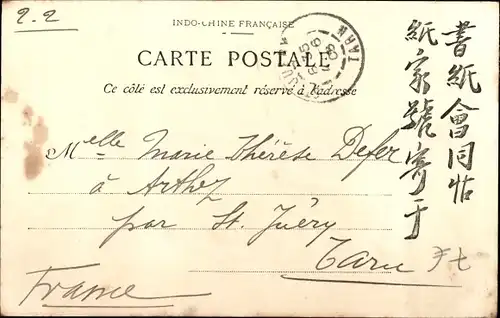 2.2
INDO-CHINE FRANÇAISE
CARTE POSTALE
Ce côté est exclusivement réservé à l'adresse
TARN
Melle Marie Thérèse Defer
à Arthez
par St. Juéry
Tarn
France
書紙會同帖
紙家號寄于